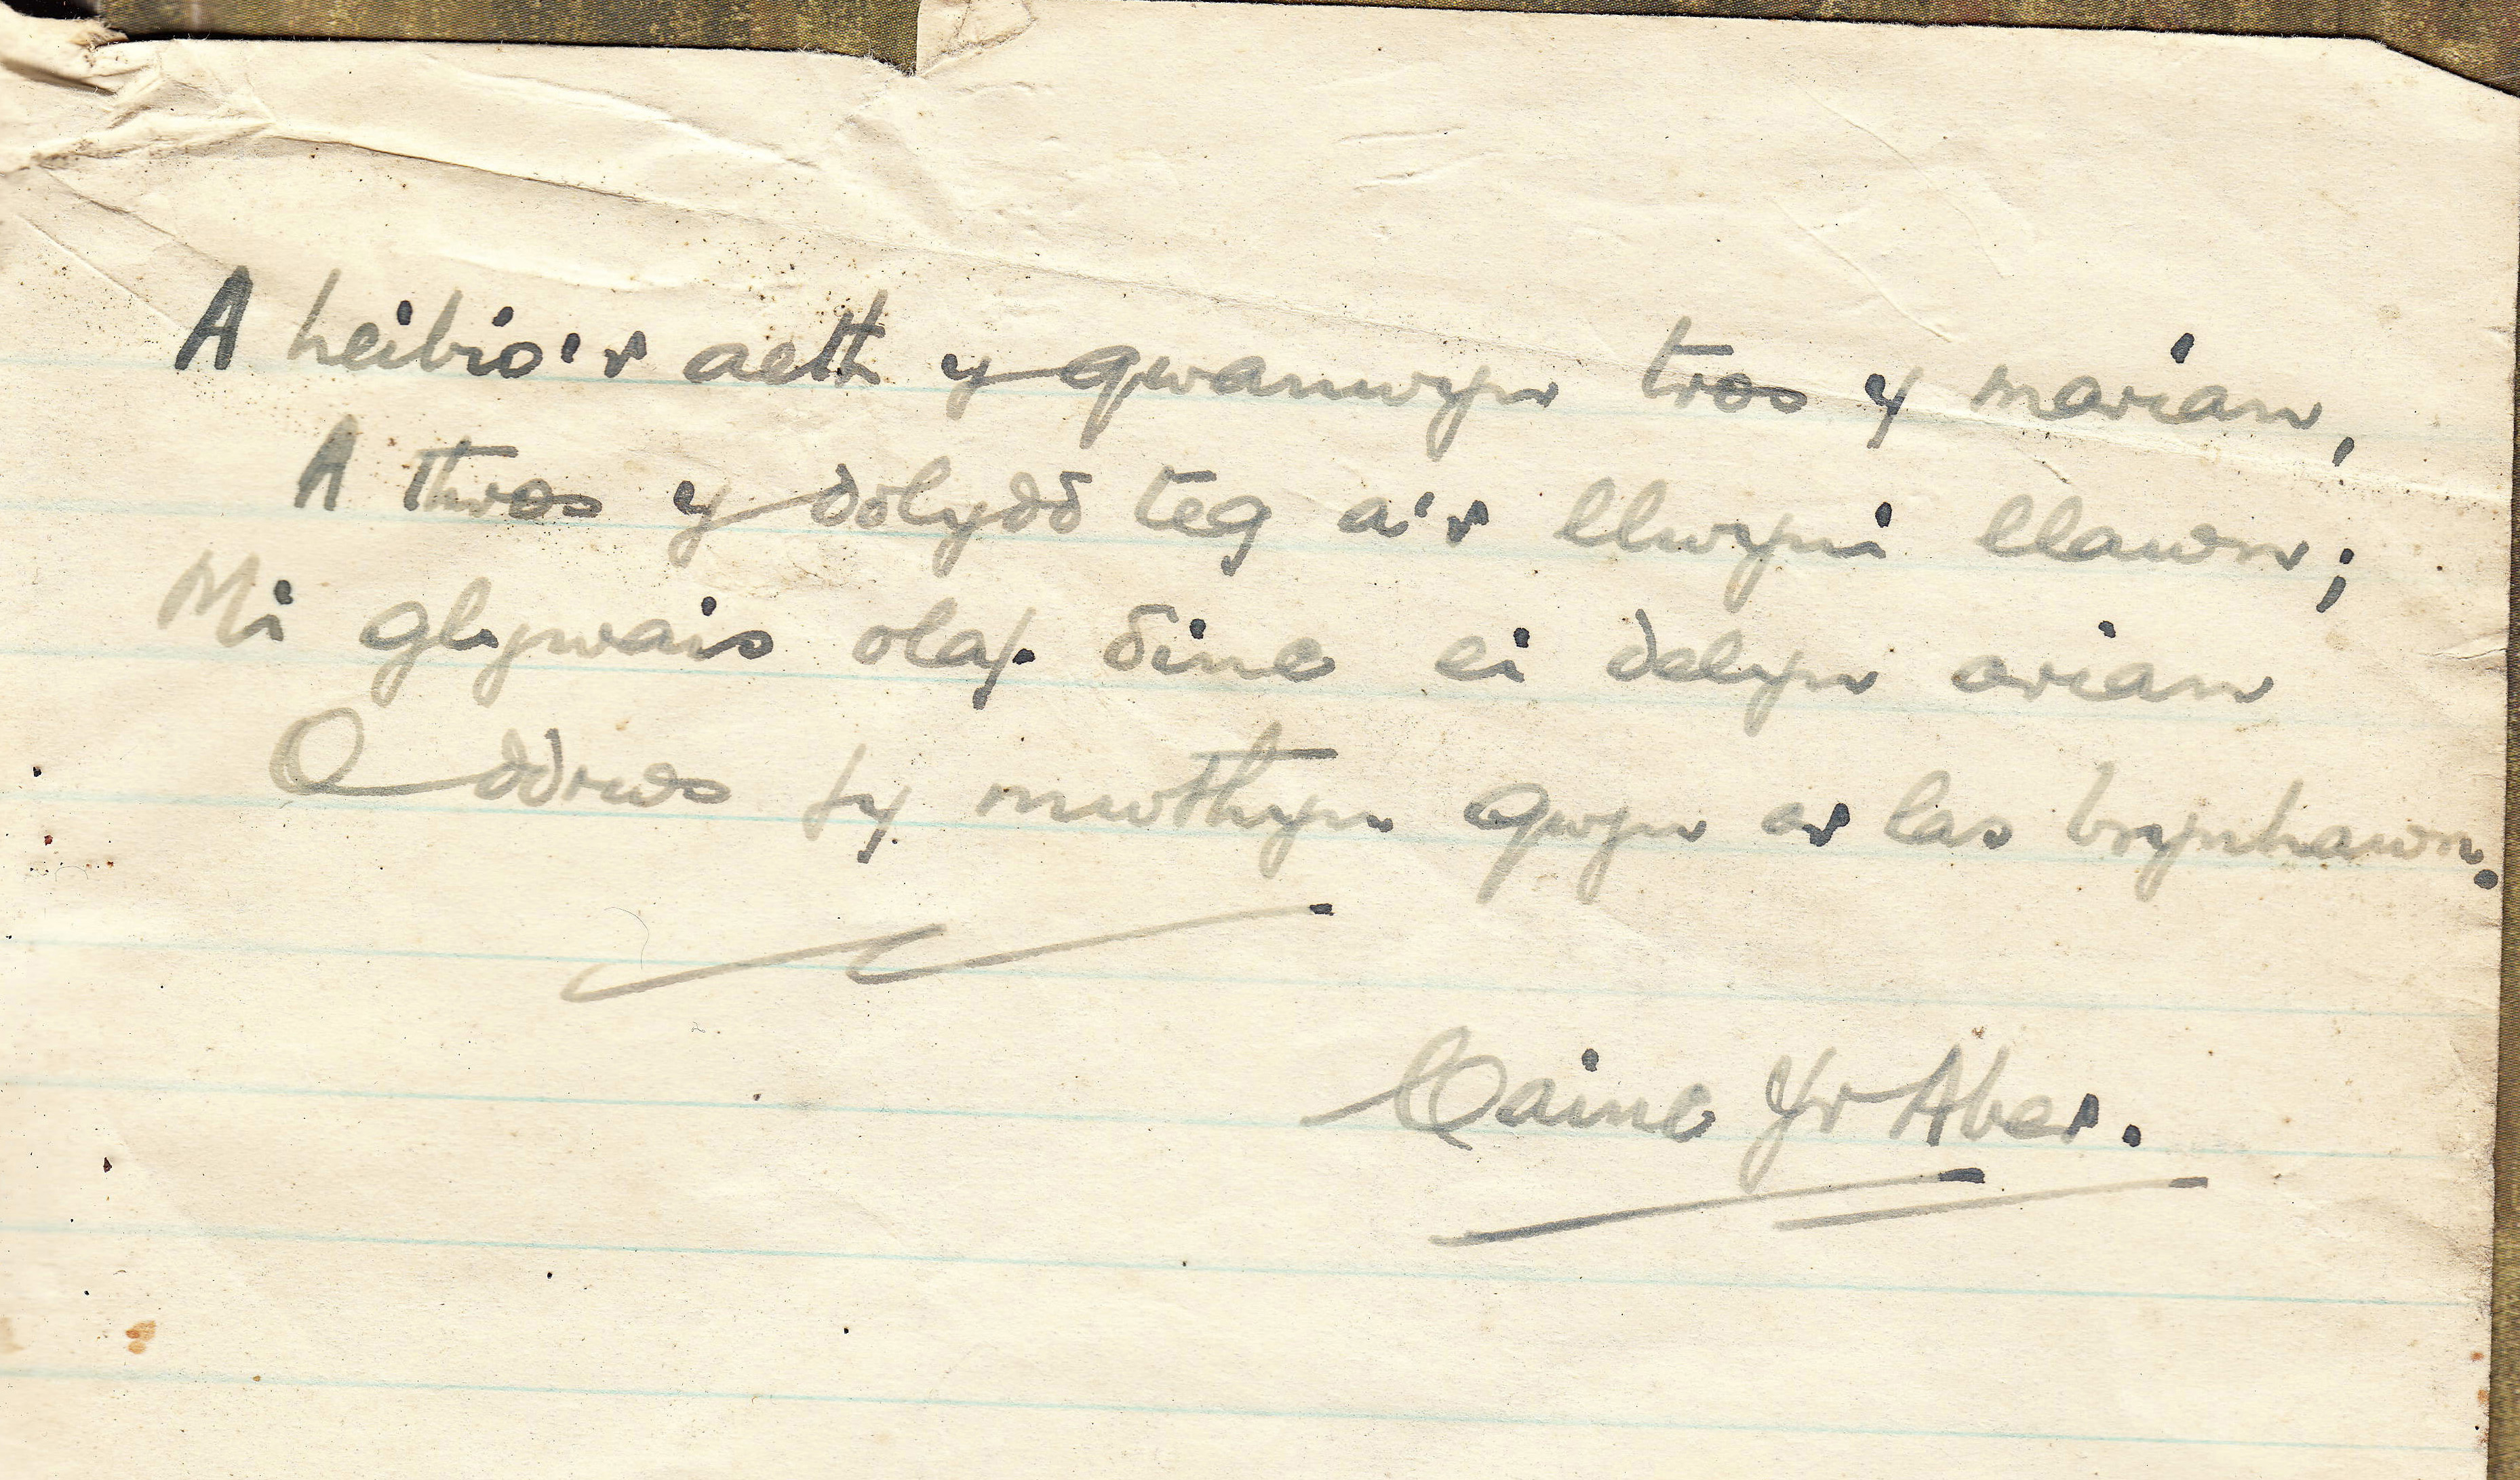 A heibio'r aeth y gwanwyn tros y marian,
A thros y dolydd teg a'r llwyni llawn;
Mi glywais olaf dinc ei delyn arian
O ddrws fy mwthyn gwyn ar las brynhawn.
Cainc Yr Aber.